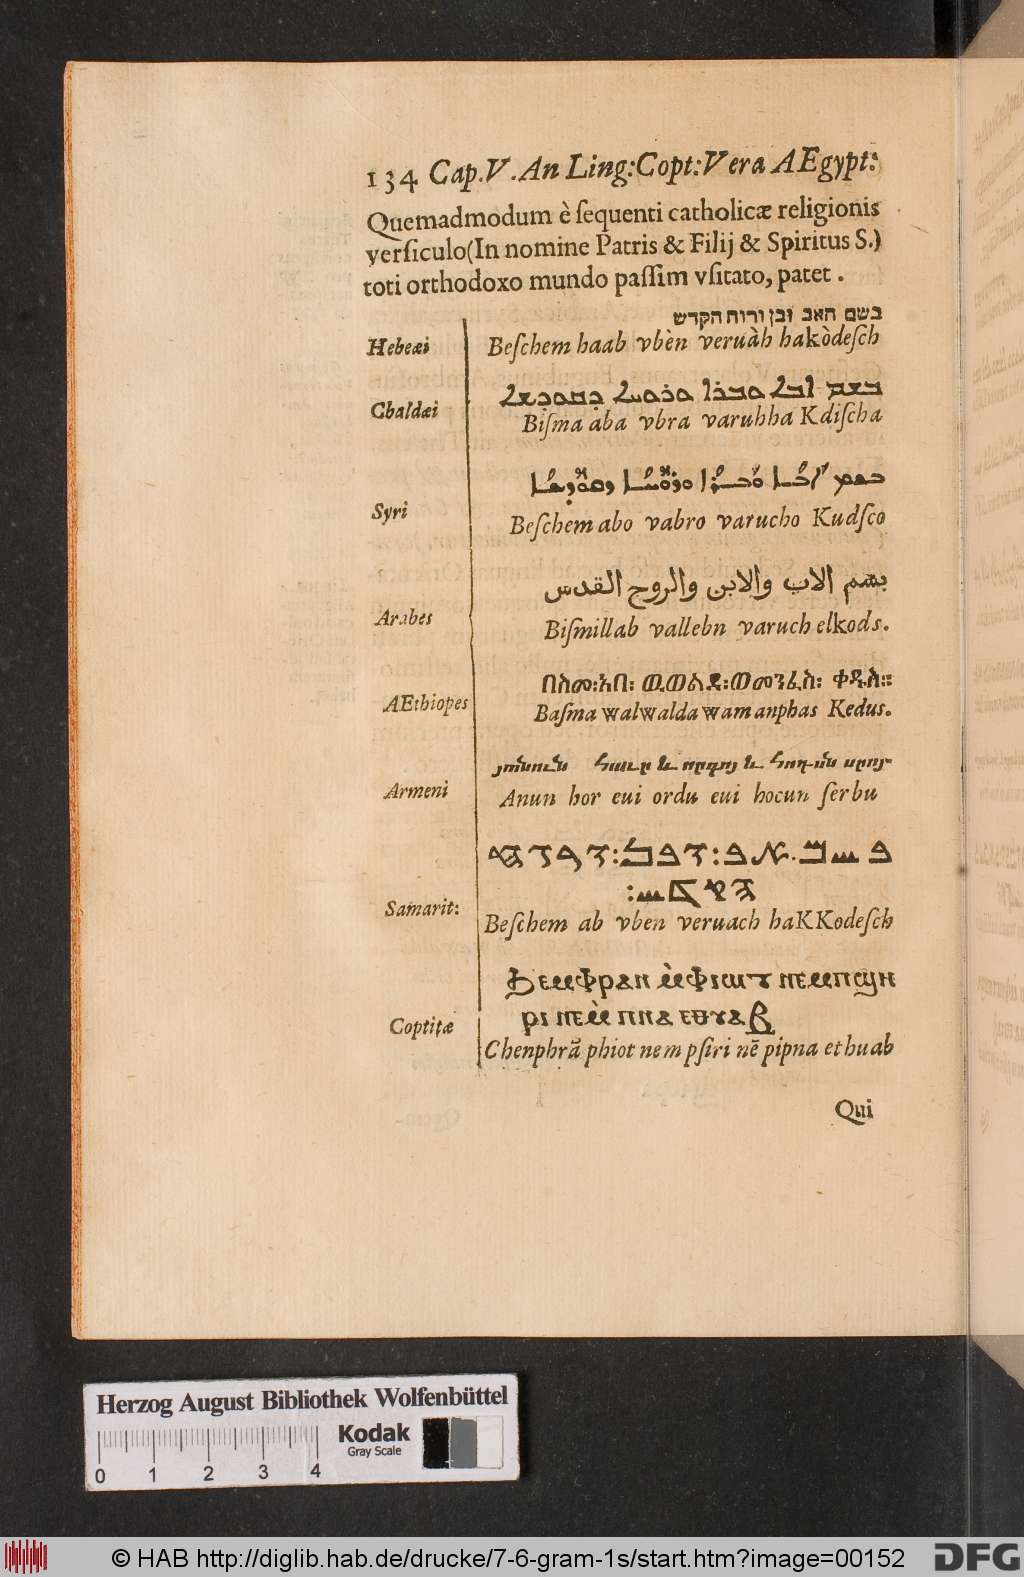 134 Cap.V.An Ling:Copt:Vera AEgypt:
Quemadmodum è ſequenti catholicæ religionis
verſiculo(In nomine Patris & Filij & Spiritus S.)
toti orthodoxo mundo paſſim vſitato, patet .
בשם האב ובן ורוח הקדש
Hebeæi
Beſchem haab vbèn veruàh hakòdeſch
Chaldæi
Biſma aba vbra varuhha Kdiſcha
Syri
Beſchem abo vabro varucho Kudſco
بسم الاب والابن والروح القدس
Arabes
Biſmillab vallebn varuch elkods.
በስመ፡አብ፡ ወወልድ፡ወመንፈስ፡ ቀዱስ።
AEthiopes
Baſma walwalda wamanphas Kedus.
Armeni
Anun hor eui ordu eui hocun ſerbu
Samarit:
Beſchem ab vben veruach haKKodeſch
Ϧⲉⲙⲫⲣⲁⲛ ⲙ̀ⲫⲓⲱⲧ ⲛⲉⲙⲡϣⲏ
ⲣⲓ ⲛⲉⲙ̀ ⲡⲡⲛⲁ ⲉⲑⲩⲁⲃ
Coptitæ
Chenphrã phiot nem pſiri nē pipna ethuab
Qui
Herzog August Bibliothek Wolfenbüttel
Kodak
Gray Scale
0 1 2 3 4
© HAB http://diglib.hab.de/drucke/7-6-gram-1s/start.htm?image=00152
DFG